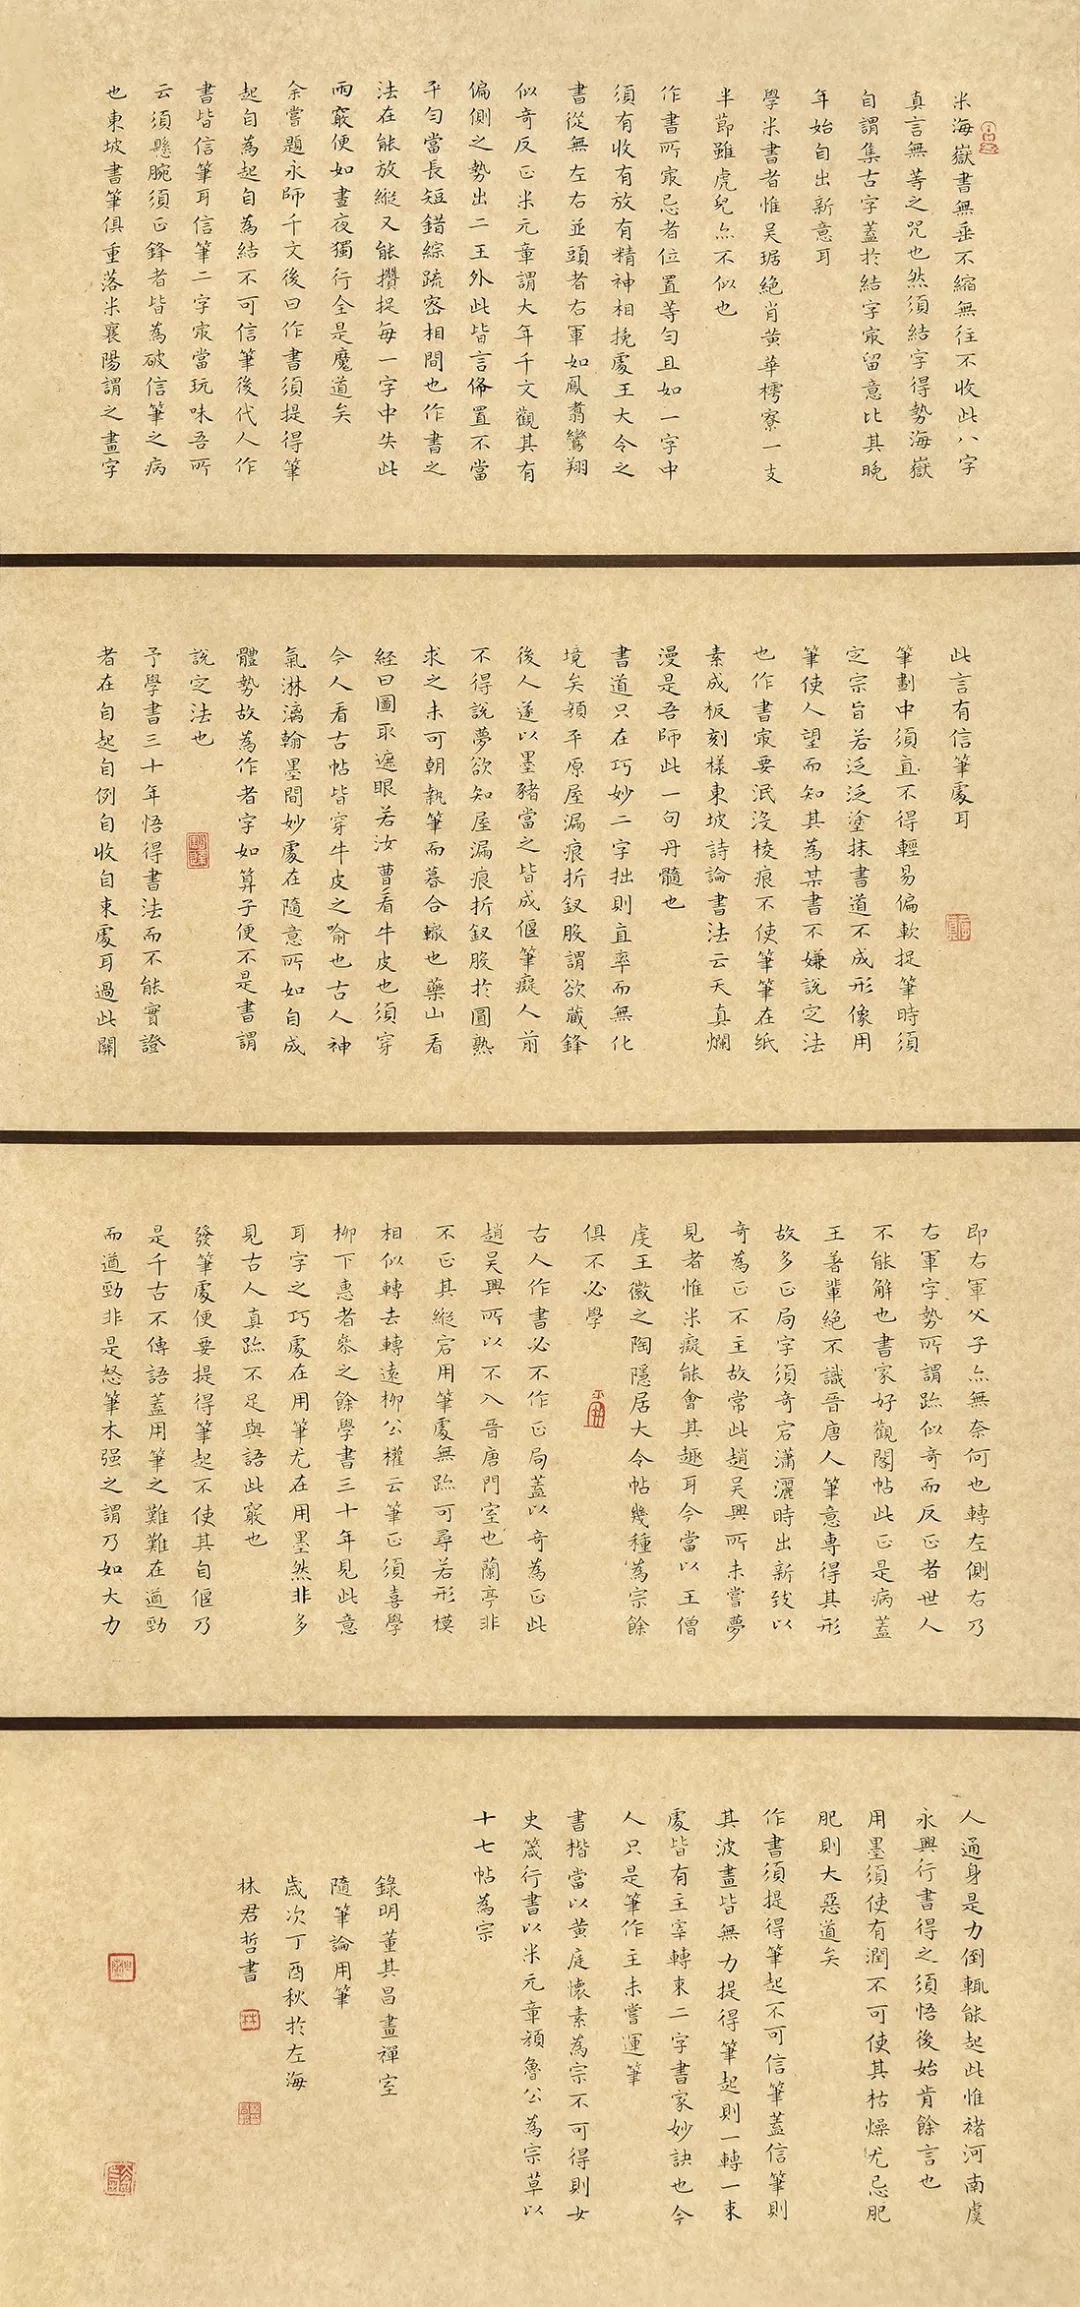 米海嶽書無垂不縮無往不收此八字
真言無等之咒也然須結字得勢海嶽
自謂集古字蓋於結字最留意比其晚
年始自出新意耳
學米書者惟吳琚絕肖黃華樗寮一支
半節雖虎兒亦不似也
作書所最忌者位置等勻且如一字中
須有收有放有精神相挽處王大令之
書從無左右並頭者右軍如鳳翥鸞翔
似奇反正米元章謂大年千文觀其有
偏側之勢出二王外此皆言佈置不當
平勻當長短錯綜疏密相間也作書之
法在能放縱又能攢捉每一字中失此
兩竅便如晝夜獨行全是魔道矣
余嘗題永師千文後曰作書須提得筆
起自為起自為結不可信筆後代人作
書皆信筆耳信筆二字最當玩味吾所
云須懸腕須正鋒者皆為破信筆之病
也東坡書筆俱重落米襄陽謂之畫字
此言有信筆處耳
筆劃中須直不得輕易偏軟捉筆時須
定宗旨若泛泛塗抹書道不成形像用
筆使人望而知其為某書不嫌說定法
也作書最要泯沒棱痕不使筆筆在紙
素成板刻樣東坡詩論書法云天真爛
漫是吾師此一句丹髓也
書道只在巧妙二字拙則直率而無化
境矣顏平原屋漏痕折釵股謂欲藏鋒
後人遂以墨豬當之皆成偃筆癡人前
不得說夢欲知屋漏痕折釵股於圓熟
求之未可朝執筆而暮合轍也藥山看
経曰圖取遮眼若汝曹看牛皮也須穿
今人看古帖皆穿牛皮之喻也古人神
氣淋漓翰墨間妙處在隨意所如自成
體勢故為作者字如算子便不是書謂
說定法也
予學書三十年悟得書法而不能實證
者在自起自倒自收自束處耳過此關
即右軍父子亦無奈何也轉左側右乃
右軍字勢所謂跡似奇而反正者世人
不能解也書家好觀閣帖此正是病蓋
王著輩絕不識晉唐人筆意專得其形
故多正局字須奇宕瀟灑時出新致以
奇為正不主故常此趙吳興所未嘗夢
見者惟米癡能會其趣耳今當以王僧
虔王徽之陶隱居大令帖幾種為宗餘
俱不必學
古人作書必不作正局蓋以奇為正此
趙吳興所以不入晉唐門室也蘭亭非
不正其縱宕用筆處無跡可尋若形模
相似轉去轉遠柳公權云筆正須喜學
柳下惠者參之餘學書三十年見此意
耳字之巧處在用筆尤在用墨然非多
見古人真跡不足與語此竅也
發筆處便要提得筆起不使其自偃乃
是千古不傳語蓋用筆之難難在遒勁
而遒勁非是怒筆木强之謂乃如大力
人通身是力倒輒能起此惟褚河南虞
永興行書得之須悟後始肯餘言也
用墨須使有潤不可使其枯燥尤忌肥
肥則大惡道矣
作書須提得筆起不可信筆蓋信筆則
其波畫皆無力提得筆起則一轉一束
處皆有主宰轉束二字書家妙訣也今
人只是筆作主未嘗運筆
書楷當以黃庭懷素為宗不可得則女
史箴行書以米元章顏魯公為宗草以
十七帖為宗
錄明董其昌畫禪室
隨筆論用筆
歲次丁酉秋於左海
林君哲書
林